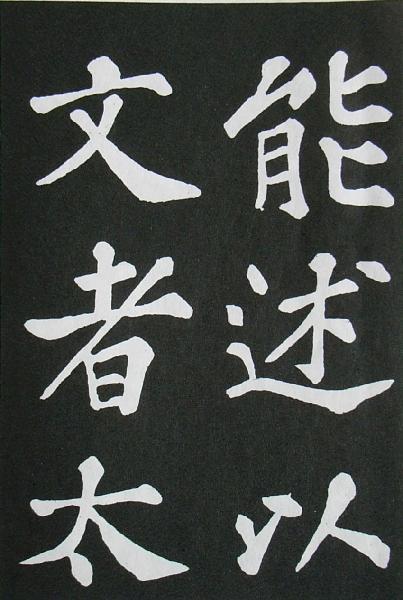 能述以
文者太